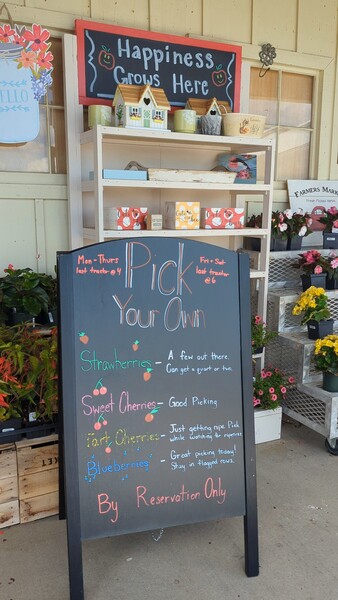 Happiness
Grows Here
HELLO
FARMERS MARK
Mon - Thurs
last tractor @ 4
Fri - Sat
last tractor
@ 6
Pick
Your Own
Strawberries - A few out there.
Can get a quart or two.
Sweet Cherries - Good Picking
Tart Cherries - Just getting ripe. Pick
while watching for ripeness
Blueberries - Great picking today!
Stay in flagged rows.
By Reservation Only